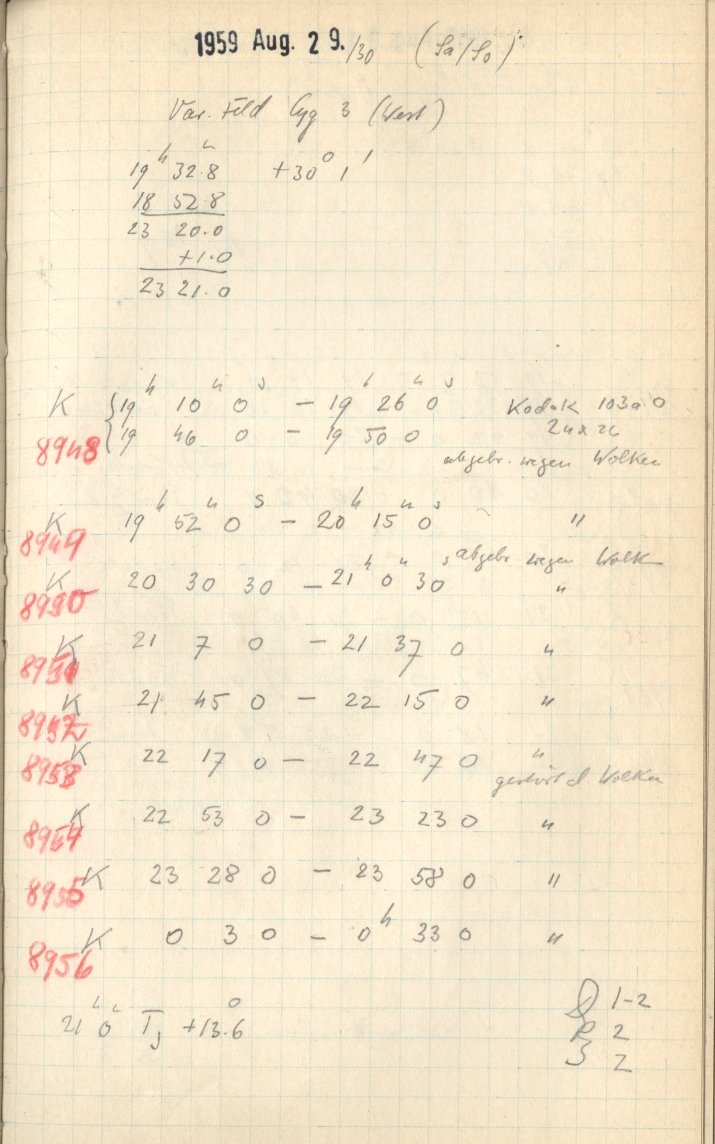 1959 Aug. 29./30 (Sa/So)
Var. Feld Cyg 3 (West)
19h 32.8m +30° 1'
18 52.8
23 20.0
+1.0
23 21.0
K { 19h 10m 0s — 19h 26m 0s Kodak 103a O
8948 { 19 46 0 — 19 50 0 24x24
abgebr. wegen Wolken
K 19h 52m 0s — 20h 15m 0s "
8949 abgebr. wegen Wolk
K 20 30 30 — 21h 0m 30s "
8950
K 21 7 0 — 21 37 0 "
8951
K 21 45 0 — 22 15 0 "
8952
K 22 17 0 — 22 47 0 "
8953 gestört d Wolken
K 22 53 0 — 23 23 0 "
8954
K 23 28 0 — 23 58 0 "
8955
K 0 3 0 — 0h 33 0 "
8956
21h 0m +13.6° 1-2
R 2
3 2